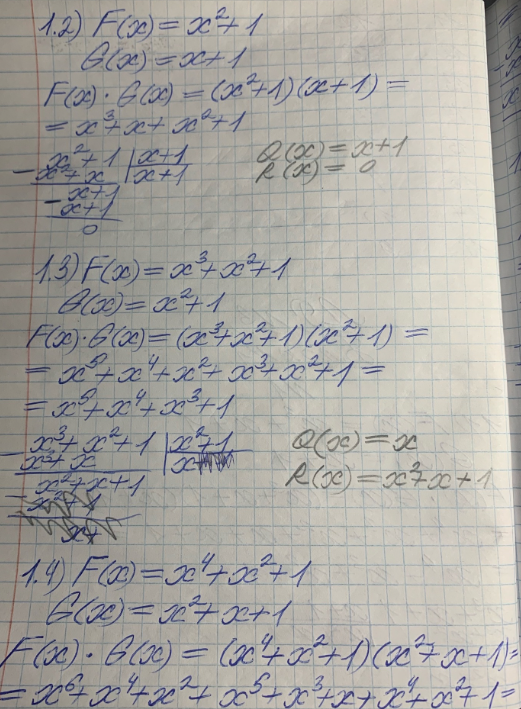 1.2) F(x) = x²+1
G(x) = x+1
F(x) · G(x) = (x²+1)(x+1) =
= x³+x+x²+1
x²+1 | x+1
- x²+x | x+1
x+1
- x+1
0
Q(x) = x+1
R(x) = 0
1.3) F(x) = x³+x²+1
G(x) = x²+1
F(x)·G(x) = (x³+x²+1)(x²+1) =
= x⁵+x⁴+x²+x³+x²+1 =
= x⁵+x⁴+x³+1
x³+x²+1 | x²+1
- x³+x | x
x²+x+1
Q(x) = x
R(x) = x²+x+1
1.4) F(x) = x⁴+x²+1
G(x) = x²+x+1
F(x) · G(x) = (x⁴+x²+1)(x²+x+1) =
= x⁶+x⁴+x²+x⁵+x³+x+x⁴+x²+1 =